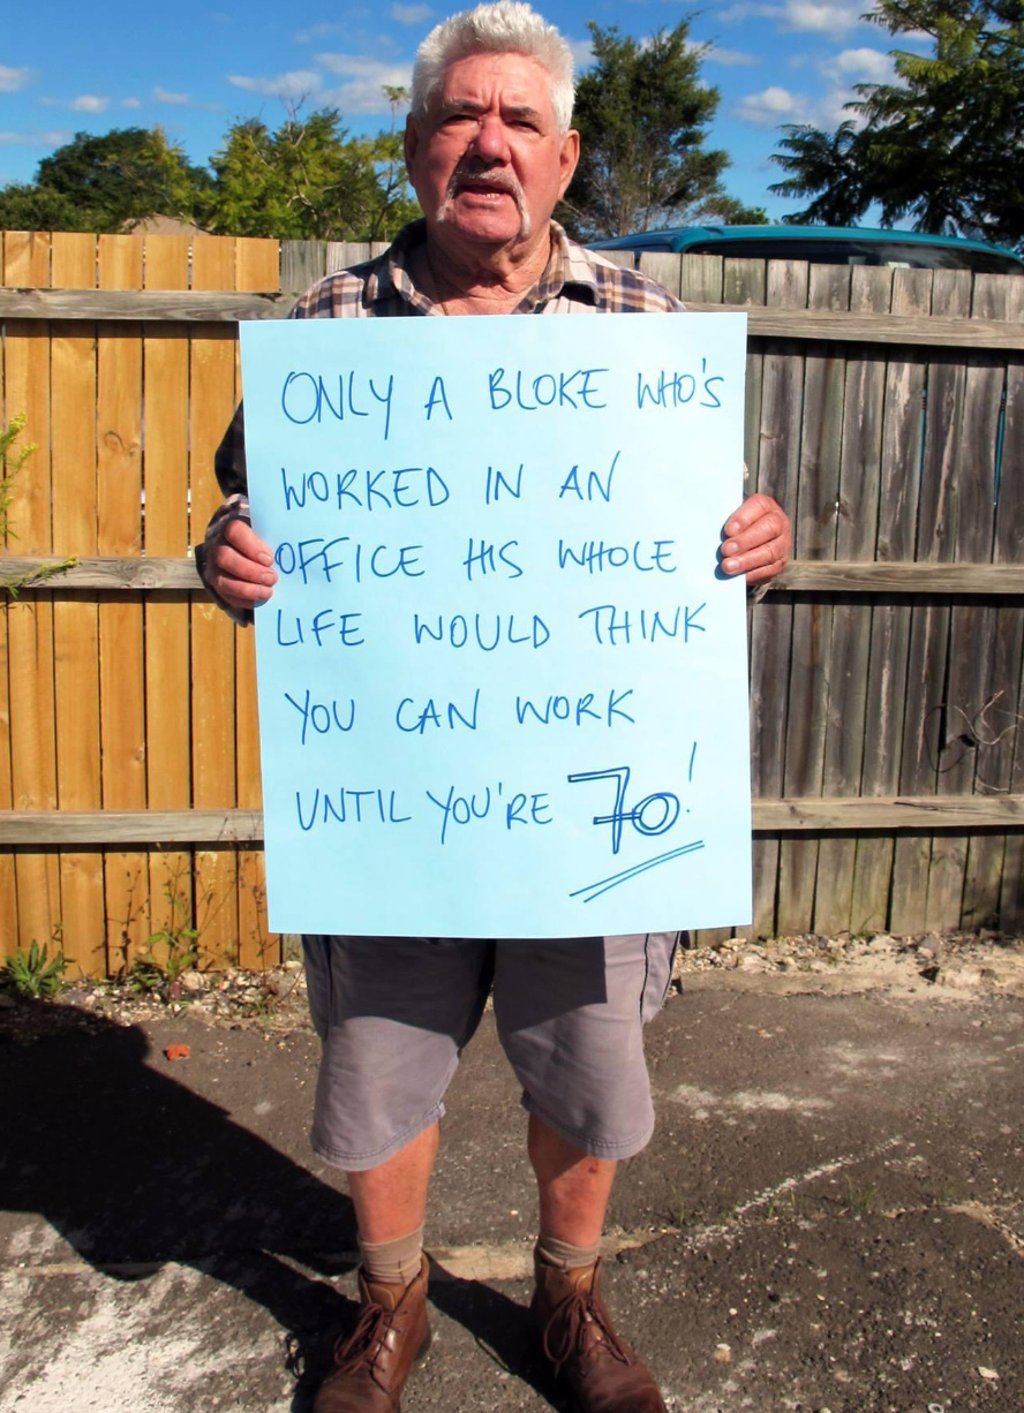 ONLY A BLOKE WHO'S
WORKED IN AN
OFFICE HIS WHOLE
LIFE WOULD THINK
YOU CAN WORK
UNTIL YOU'RE 70!